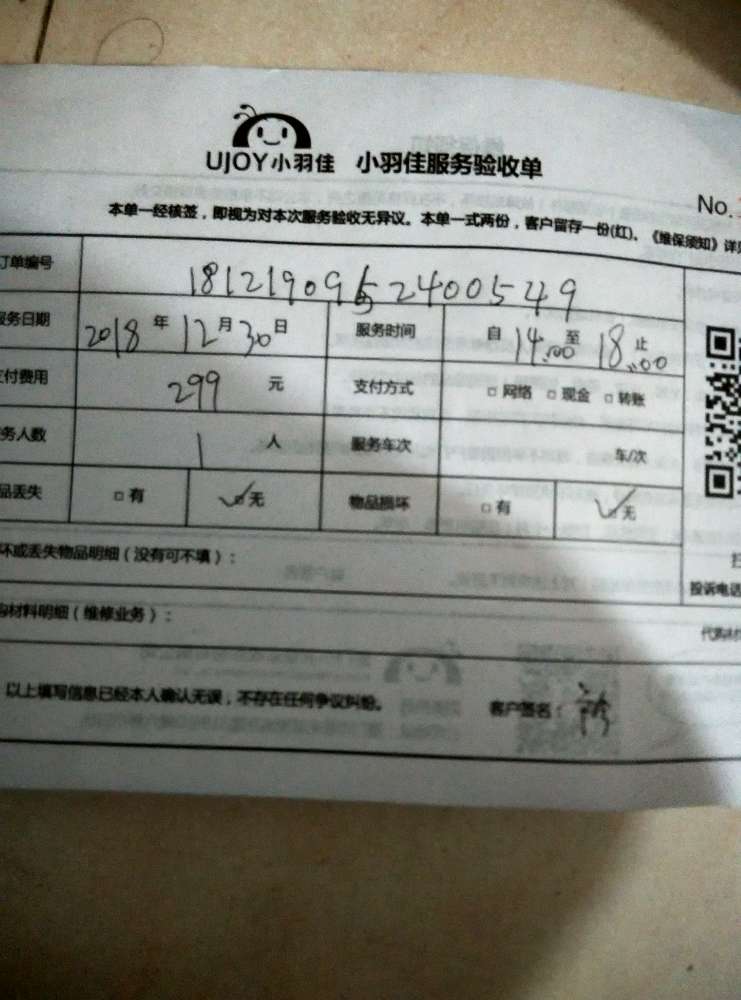 UJOY小羽佳 小羽佳服务验收单
No.
本单一经核签，即视为对本次服务验收无异议。本单一式两份，客户留存一份(红)、《维保须知》详见
订单编号 1812190952400549
服务日期 2018年12月30日 服务时间 自14:00至18:00止
支付费用 299元 支付方式 □网络 □现金 □转账
务人数 1人 服务车次 车/次
品丢失 □有 ☑无 物品损坏 □有 ☑无
坏或丢失物品明细（没有可不填）：
投诉电话
购材料明细（维修业务）： 代购材
以上填写信息已经本人确认无误，不存在任何争议纠纷。 客户签名：